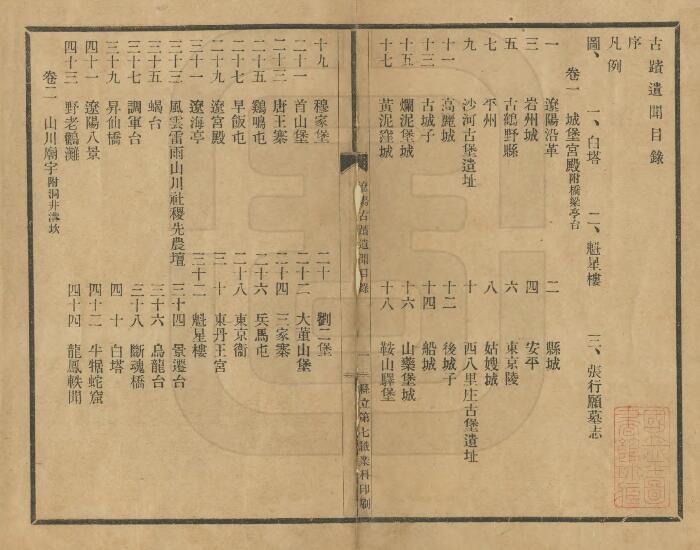 古蹟遺聞目錄
序
凡例
圖、 一、白塔 二、魁星樓 三、張行願墓志
卷一 城堡宮殿附橋梁亭台
一 遼陽沿革 二 縣城
三 岩州城 四 安平
五 古鶴野縣 六 東京陵
七 平州 八 姑嫂城
九 沙河古堡遺址 十 西八里庄古堡遺址
十一 高麗城 十二 後城子
十三 古城子 十四 船城
十五 爛泥堡城 十六 山藥堡城
十七 黃泥窪城 十八 鞍山驛堡
遼陽古蹟遺聞目錄 一 縣立第七職業科印刷
十九 穆家堡 二十 劉二堡
二十一 首山堡 二十二 大董山堡
二十三 唐王寨 二十四 三家寨
二十五 鷄鳴屯 二十六 兵馬屯
二十七 早飯屯 二十八 東京衞
二十九 遼宮殿 三十 東丹王宮
三十一 遼海亭 三十二 魁星樓
三十三 風雲雷雨山川社稷先農壇 三十四 景遷台
三十五 蝎台 三十六 烏龍台
三十七 調軍台 三十八 斷魂橋
三十九 昇仙橋 四十 白塔
四十一 遼陽八景 四十二 牛犋蛇窟
四十三 野老鸛灘 四十四 龍鳳軼聞
卷二 山川廟宇附洞井溝坎